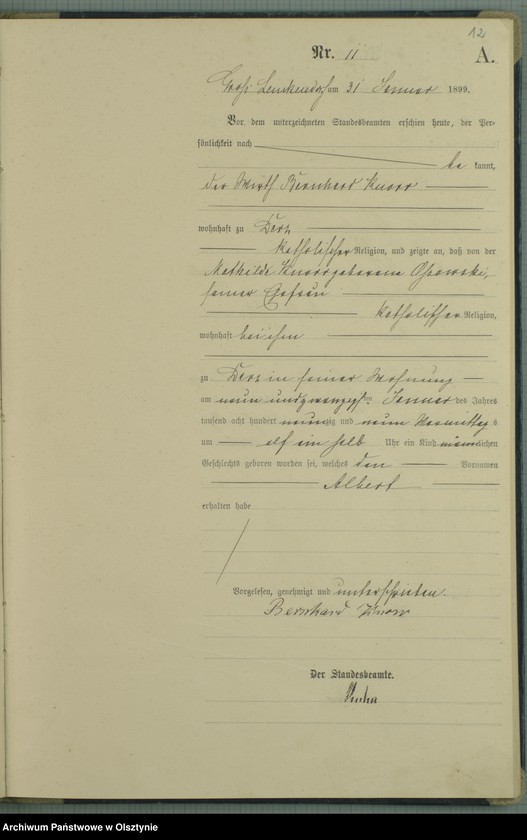 12
Nr. 11
A.
Groß Lemkendorf am 31 Januar 1899.
Vor dem unterzeichneten Standesbeamten erschien heute, der Per-
sönlichkeit nach
be kannt,
der Wirth Bernhard Knorr
wohnhaft zu Derz
katholischer Religion, und zeigte an, daß von der
Mathilde Knorr geborene Ossowski,
seiner Ehefrau
katholischer Religion,
wohnhaft bei ihm
zu Derz in seiner Wohnung
am neun und zwanzigsten Januar des Jahres
tausend acht hundert neunzig und neun Vormittags
um elf ein halb Uhr ein Kind männlichen
Geschlechts geboren worden sei, welches den Vornamen
Albert
erhalten habe
Vorgelesen, genehmigt und unterschrieben.
Bernhard Knorr
Der Standesbeamte.
Archiwum Państwowe w Olsztynie